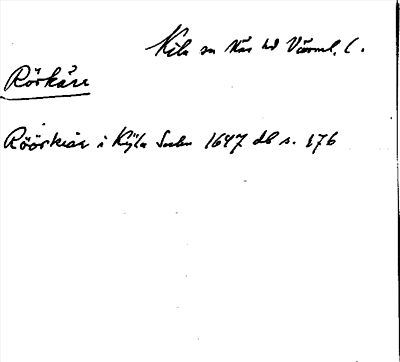 Kila sn Näs hd Värml. l.
Rörkärr
Röörkiär i Kijla Sochn 1647 db s. 176